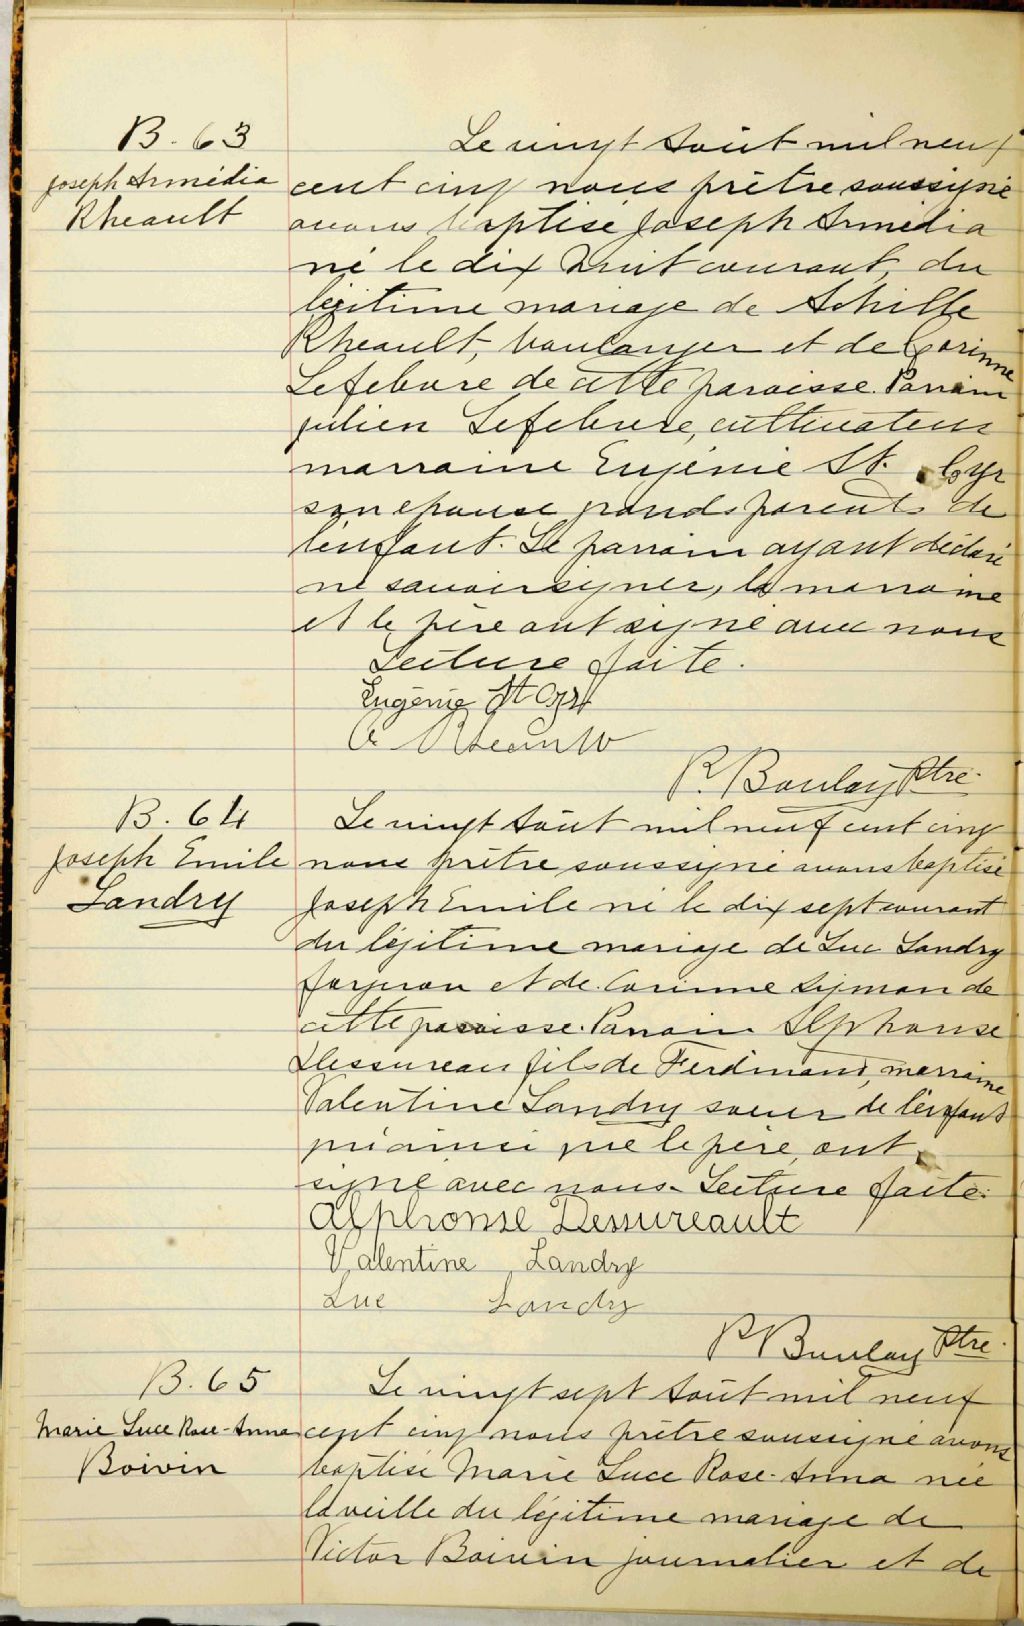 B. 63
Joseph Armédia
Rheault
Le vingt Août mil neuf
cent cinq nous prêtre soussigné
avons baptisé Joseph Armédia
né le dix huit courant, du
légitime mariage de Achille
Rheault, boulanger et de Corinne
Lefebvre de cette paroisse. Parrain
Julien Lefebvre, cultivateur
marraine Eugénie St. Cyr
son épouse grands parents de
l'enfant. Le parrain ayant déclaré
ne savoir signer, la marraine
et le père ont signé avec nous
Lecture faite.
Eugénie St Cyr
A Rheault
P. Boulay Ptre.
B. 64
Joseph Emile
Landry
Le vingt Août mil neuf cent cinq
nous prêtre soussigné avons baptisé
Joseph Emile né le dix sept courant
du légitime mariage de Luc Landry
forgeron et de Corinne Sigman de
cette paroisse. Parrain Alphonse
Dessureau fils de Ferdinand, marraine
Valentine Landry soeur de l'enfant
qui ainsi que le père, ont
signé avec nous. Lecture faite.
Alphonse Dessureault
Valentine Landry
Luc Landry
P Boulay Ptre.
B. 65
Marie Luce Rose-Anna
Boivin
Le vingt sept Août mil neuf
cent cinq nous prêtre soussigné avons
baptisé Marie Luce Rose-Anna née
la veille du légitime mariage de
Victor Boivin journalier et de